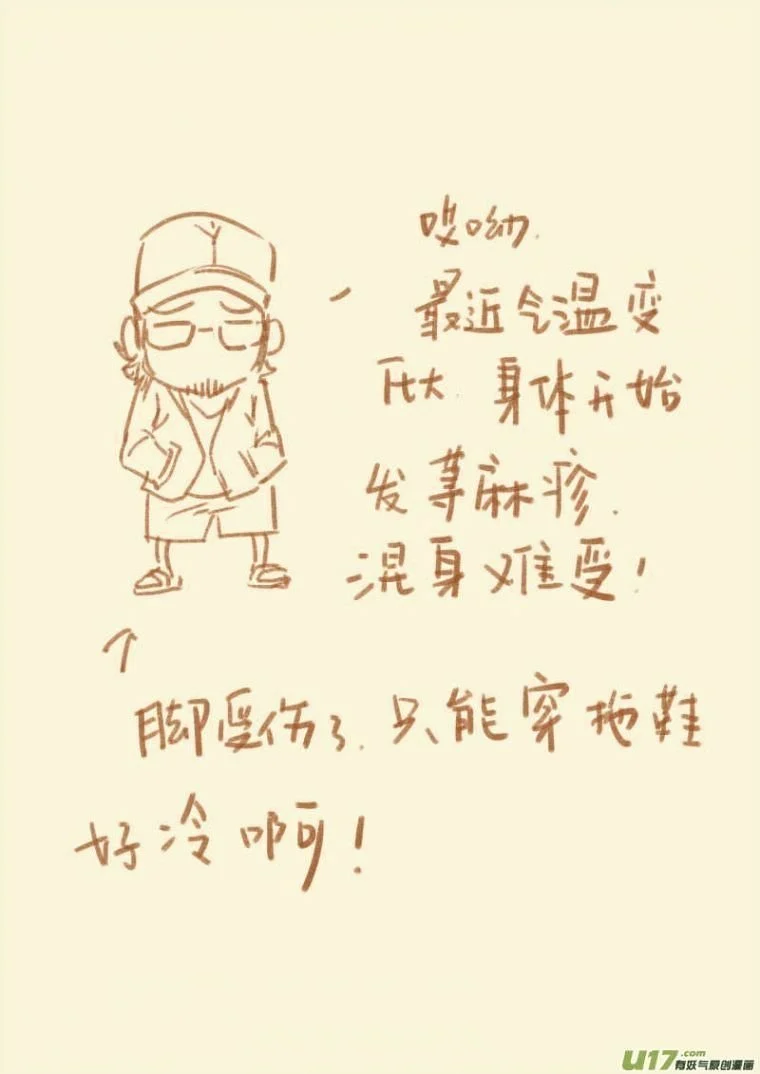 哎呦.
最近气温变
化大. 身体开始
发荨麻疹.
混身难受!
脚受伤了. 只能穿拖鞋
好冷啊!
U17.com
有妖气原创漫画